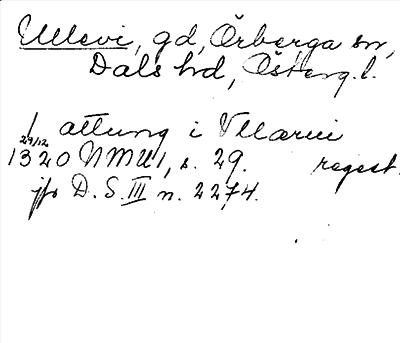 Ullevi, gd, Örberga sn,
Dals hd, Österg. l.
1 attung i Vllærui
29/12
1320 NMU1, s. 29. regest.
jfr D. S. III n. 2274.